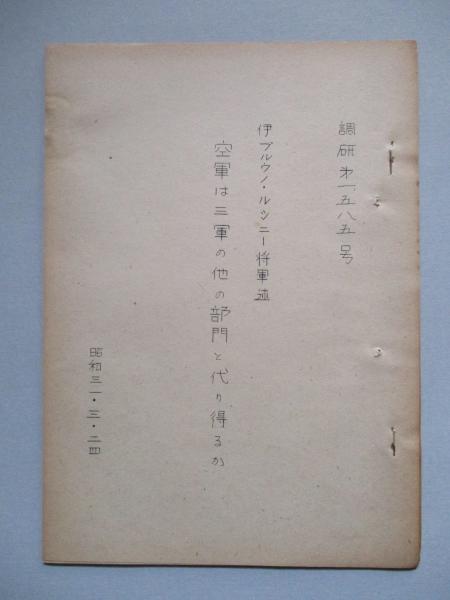 調研第一五八五号
伊ブルウノ・ルシニー将軍述
空軍は三軍の他の部門と代り得るか
昭和三一・三・二四